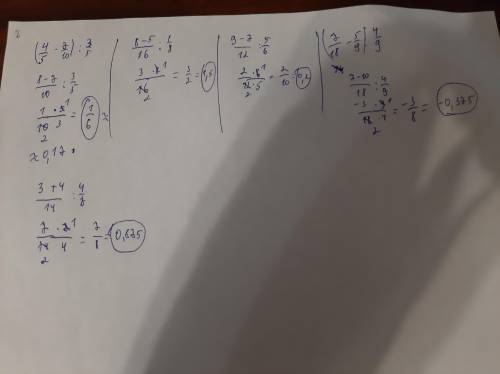 (4/5 - 7/10) : 3/5
8-7/10 : 3/5
1 · 5 1/10 3 = 1/6 ≈
2
≈ 0,17
3+4/14 : 4/7
7 · 7 1/14 4 = 7/8 = 0,875
2
8-5/16 : 1/8
3 · 8 1/16 = 3/2 = 1,5
2
9-7/12 : 5/6
2 · 6 1/12 · 5 = 2/10 = 0,2
2
(7/18 - 5/9) : 4/9
7-10/18 : 4/9
-3 · 9 1/18 · 4 = -3/8 = -0,375
2